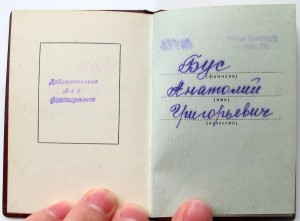 Действительно
без
фотокарточки
Бус
(фамилия)
Анатолий
(имя)
Григорьевич
(отчество)